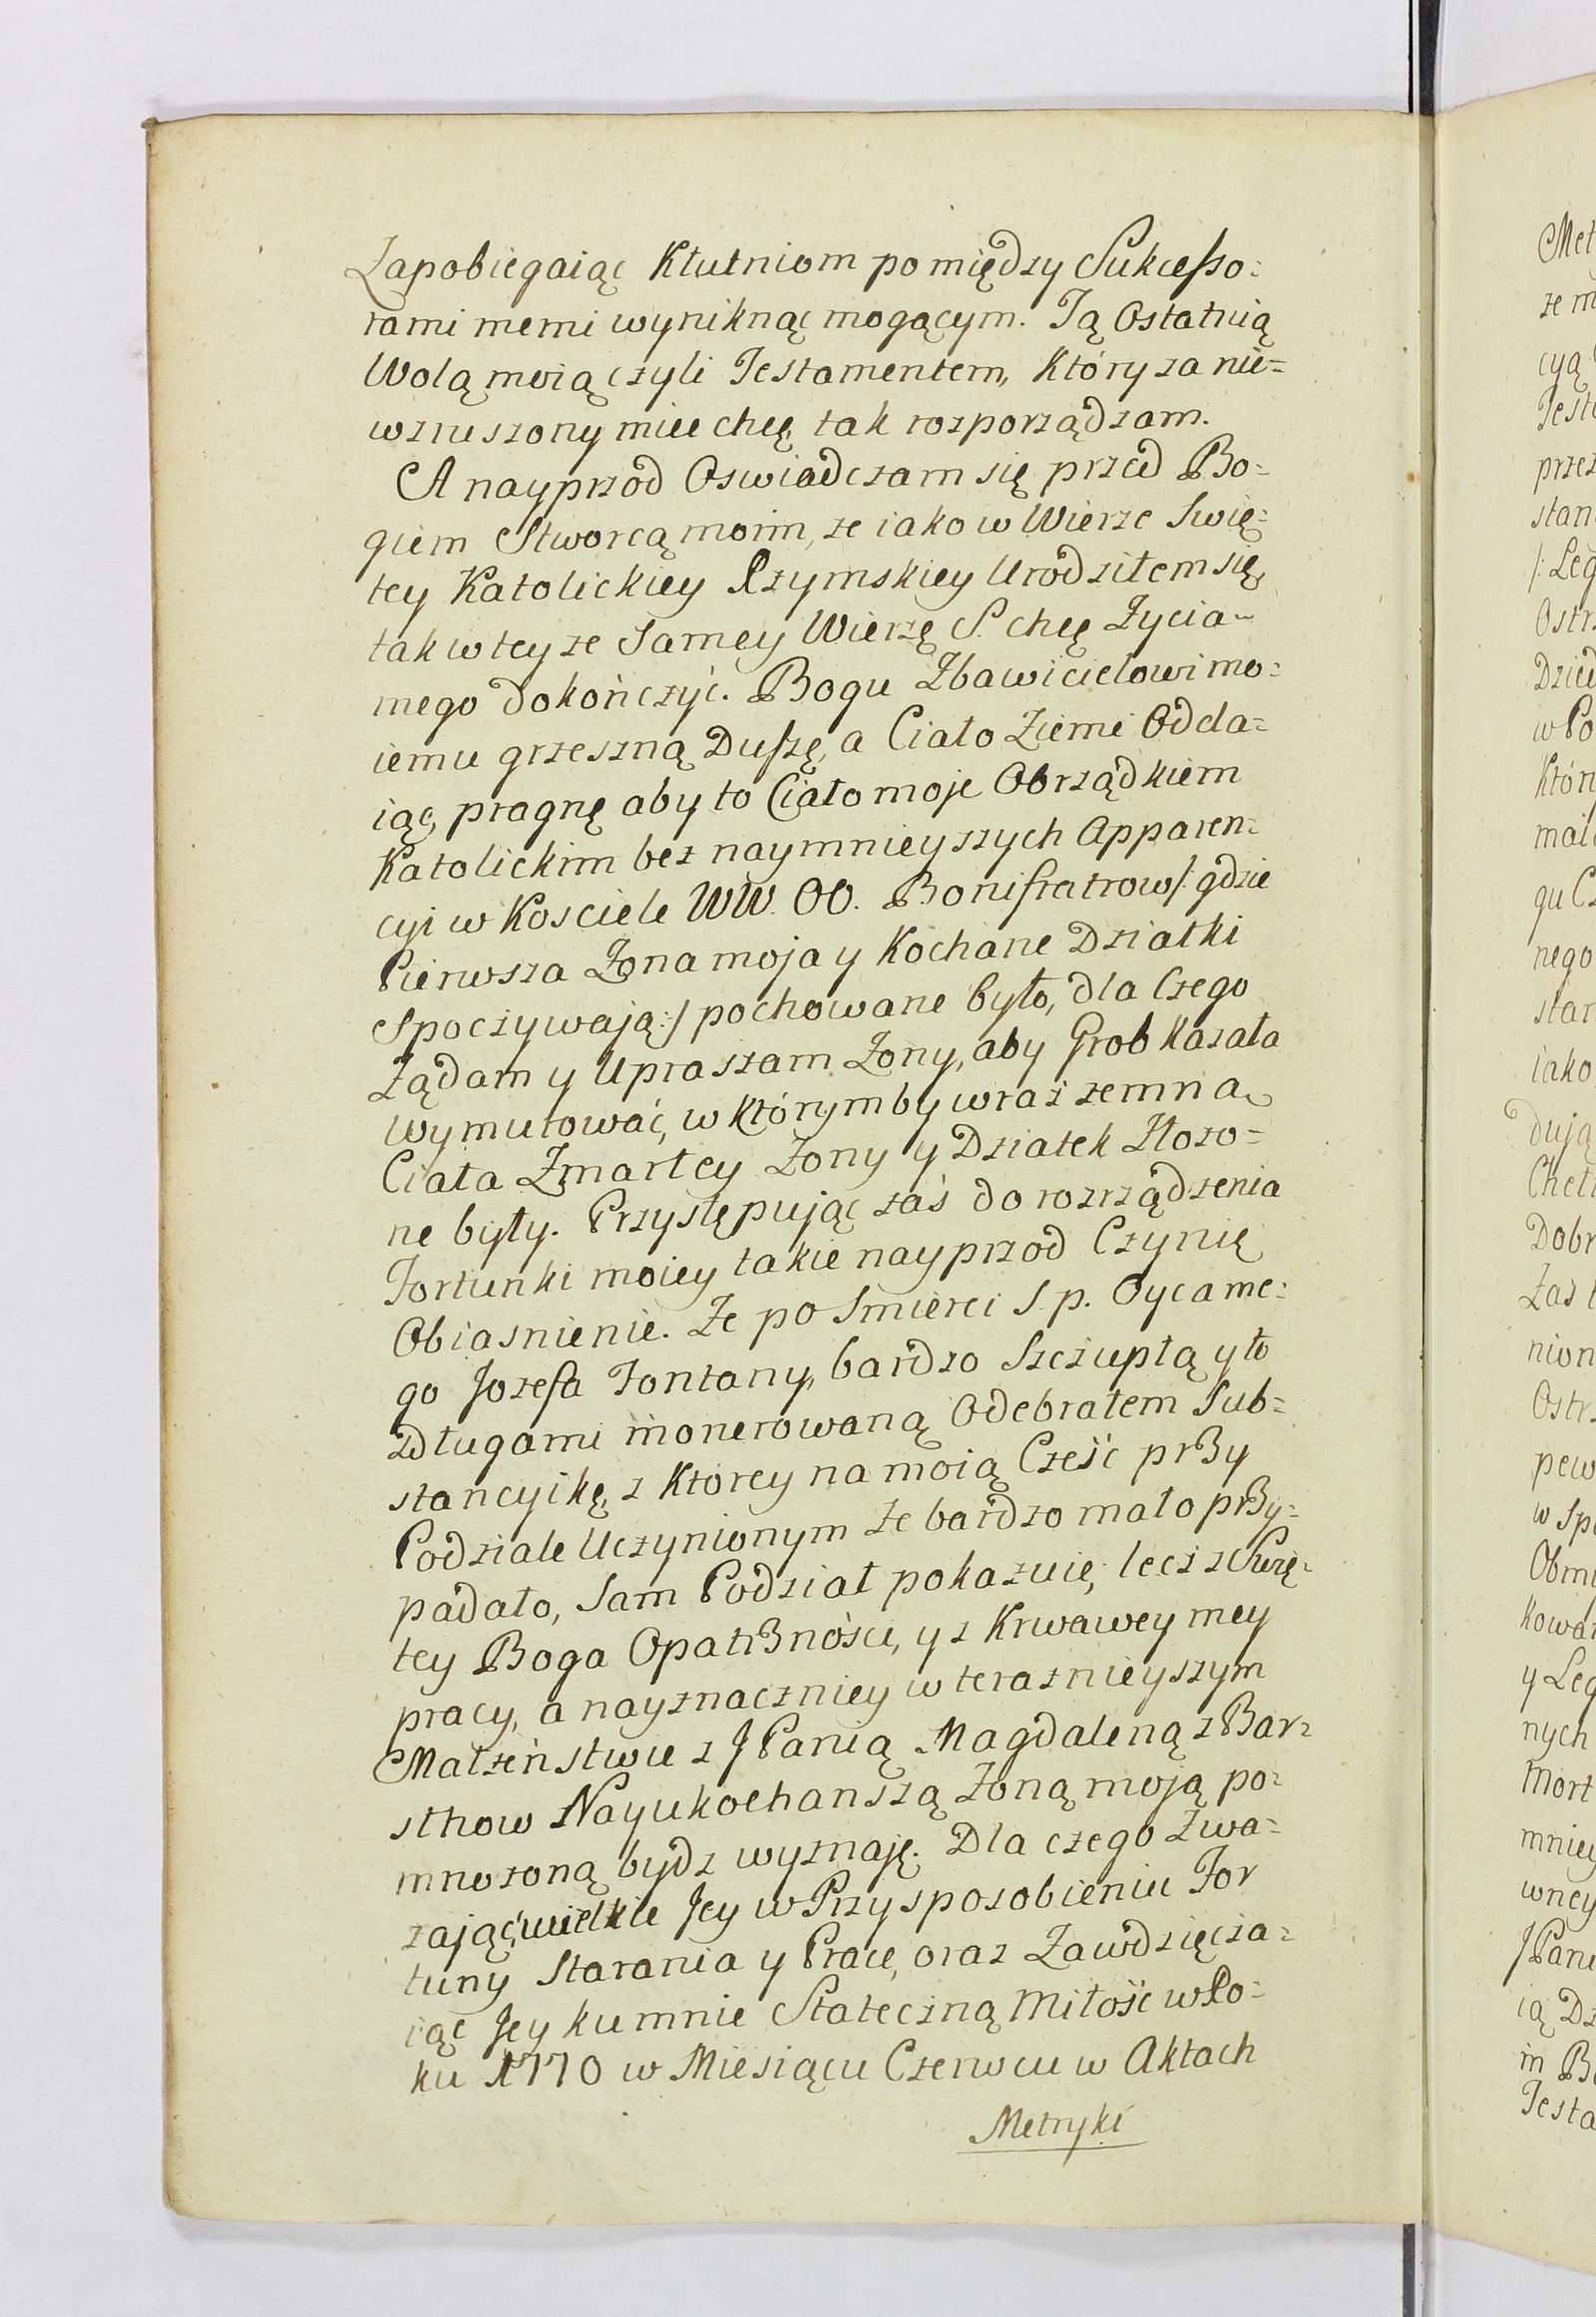 Zapobiegaiąc Kłutniom pomiędzy Sukcesso=
rami memi wyniknąc mogącym. Tą Ostatnią
Wolą moią czyli Testamentem, który za nie=
wzruszony miec chcę, tak rozporządzam.
A nayprzod Oswiadczam się przed Bo=
giem Stworcą moim, ze iako w Wierze Swię=
tey Katolickiey Rzymskiey Urodziłem się,
tak w teyze Samey Wierzę S. chcę Życia
mego dokończyć. Bogu Zbawicielowi mo=
iemu grzeszną Duszę, a Ciało Ziemi Odda=
iąc, pragnę aby to Ciało moje Obrządkiem
Katolickim bez naymnieyszych Apparen=
cyi w Kosciele WW. OO. Bonifratrow /: gdzie
Pierwsza Żona moja y Kochane Dziatki
Spoczywają :/ pochowane było, dla Czego
Żądam y Upraszam Żony, aby Grob Kazała
Wymurować, w którymby wraz zemną
Ciała Zmarłey Żony y Dziatek Złożo=
ne były. Przystępując zaś do rozrządzenia
Fortunki moiey takie nayprzod Czynię
Obiasnienie. Że po Smierci S. p. Oyca me=
go Jozefa Fontany, bardzo Szczupłą y to
Długami inonerowaną Odebrałem Sub=
stancyikę, z Ktorey na moią Cześć przy
Podziale Uczynionym że bardzo mało przy=
padało, Sam Podział pokazuie, lecz z Swię=
tey Boga Opatrzności, y z Krwawey mey
pracy, a nayznaczniey w teraznieyszym
Małżeństwie z JPanią Magdaleną z Bar=
sthow Nayukochanszą Żoną moją po=
mnożoną bydz wyznaję. Dla czego Zwa=
zając wielkie Jey w Przysposobieniu For
tuny Starania y Prace, oraz Zawdzięcza=
iąc Jey ku mnie Stateczną Miłość w Ro=
ku 1770 w Miesiącu Czerwcu w Aktach
Metryki